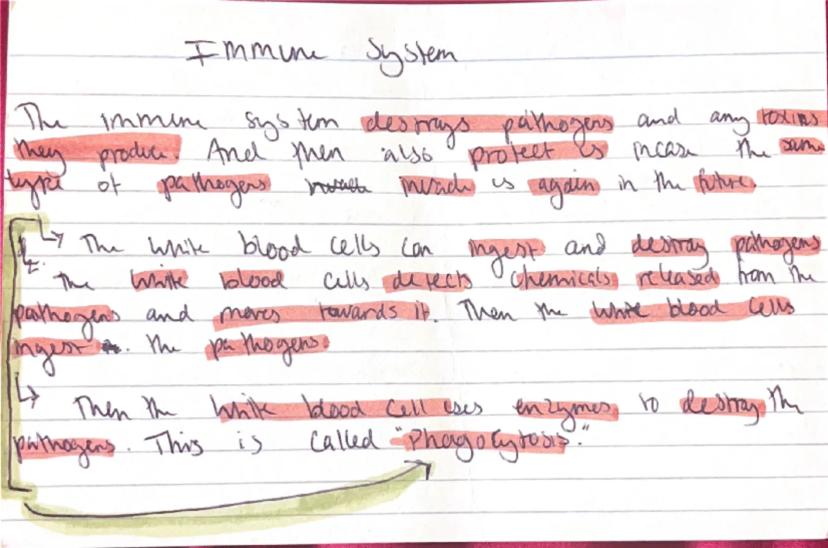 Immune System
The immune system destroys pathogens and any toxins
they produce. And then also protect us incase the same
type of pathogens invade us again in the future.
The white blood cells can ingest and destroy pathogens
The white blood cells detects chemicals released from the
pathogens and moves towards it. Then the white blood cells
ingest the pathogens
Then the white blood cell uses enzymes to destroy the
pathogens. This is called "Phagocytosis."